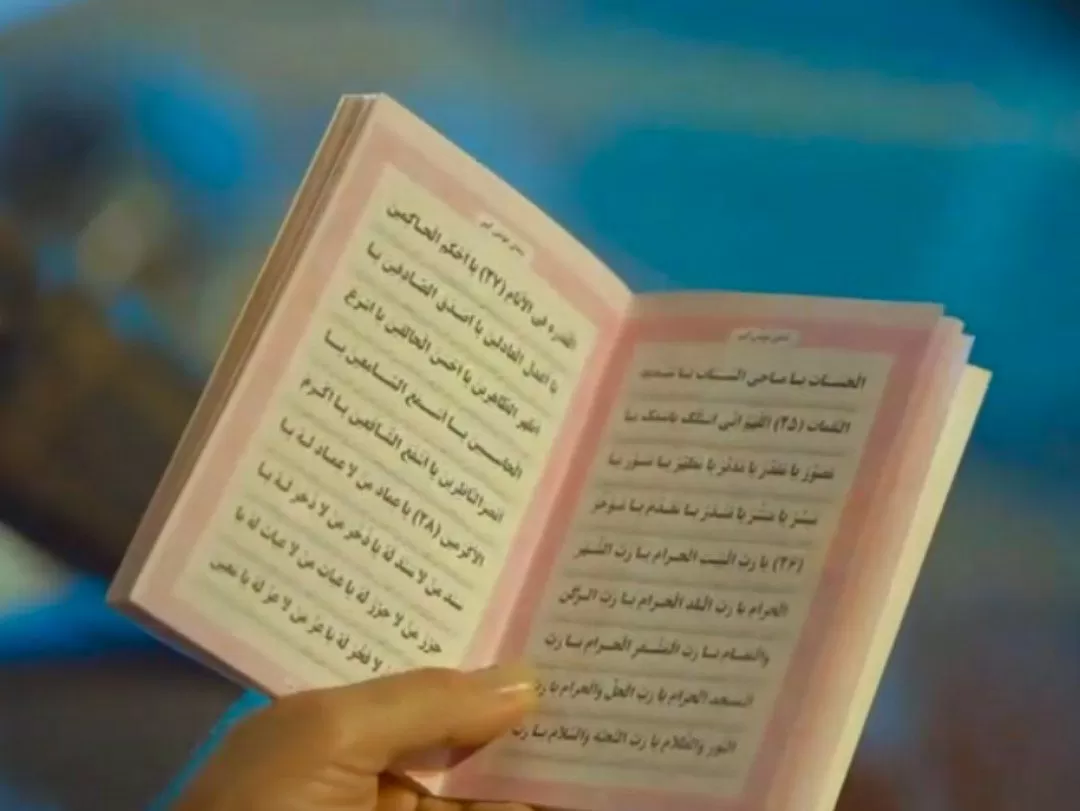 دعای جوشن کبیر
الْحسنات يـا مـاحى السـيئات يـا شـديد
النقمات (۲۵) اللهم انى اسئلك باسمك يـا
مصور يا مقدر يا مدبر يا مطهر يـا منور يـا
ميسر يا مبشر يا منذر يـا مقدم يـا مؤخر
(۲۶) يا رب البيت الحرام يا رب الشهر
الحرام يا رب البلد الحرام يـا رب الركن
والمقام يـا رب المشعر الحرام يـا رب
المسجد الحرام يا رب الحل والحرام يا رب
النور والظلام يا رب التحية والسلام يا رب
دعای جوشن کبیر
القدرة فى الانام (۲۷) يا احكم الحاكمين
يا اعدل العادلين يا اصدق الصادقين يـا
اطهر الطاهرين يا احسن الخالقين يا اسرع
الحاسبين يـا اسمع السامعين يـا
ابصر الناظرين يا اشفع الشافعين يا اكرم
الاكرمين (۲۸) يا عماد من لا عماد له يـا
سند من لا سند له يا ذخر من لا ذخر له يا
حرز من لا حرز له يا غياث من لا غياث له يا
من لا فخر له يا عز من لا عز له يا معين